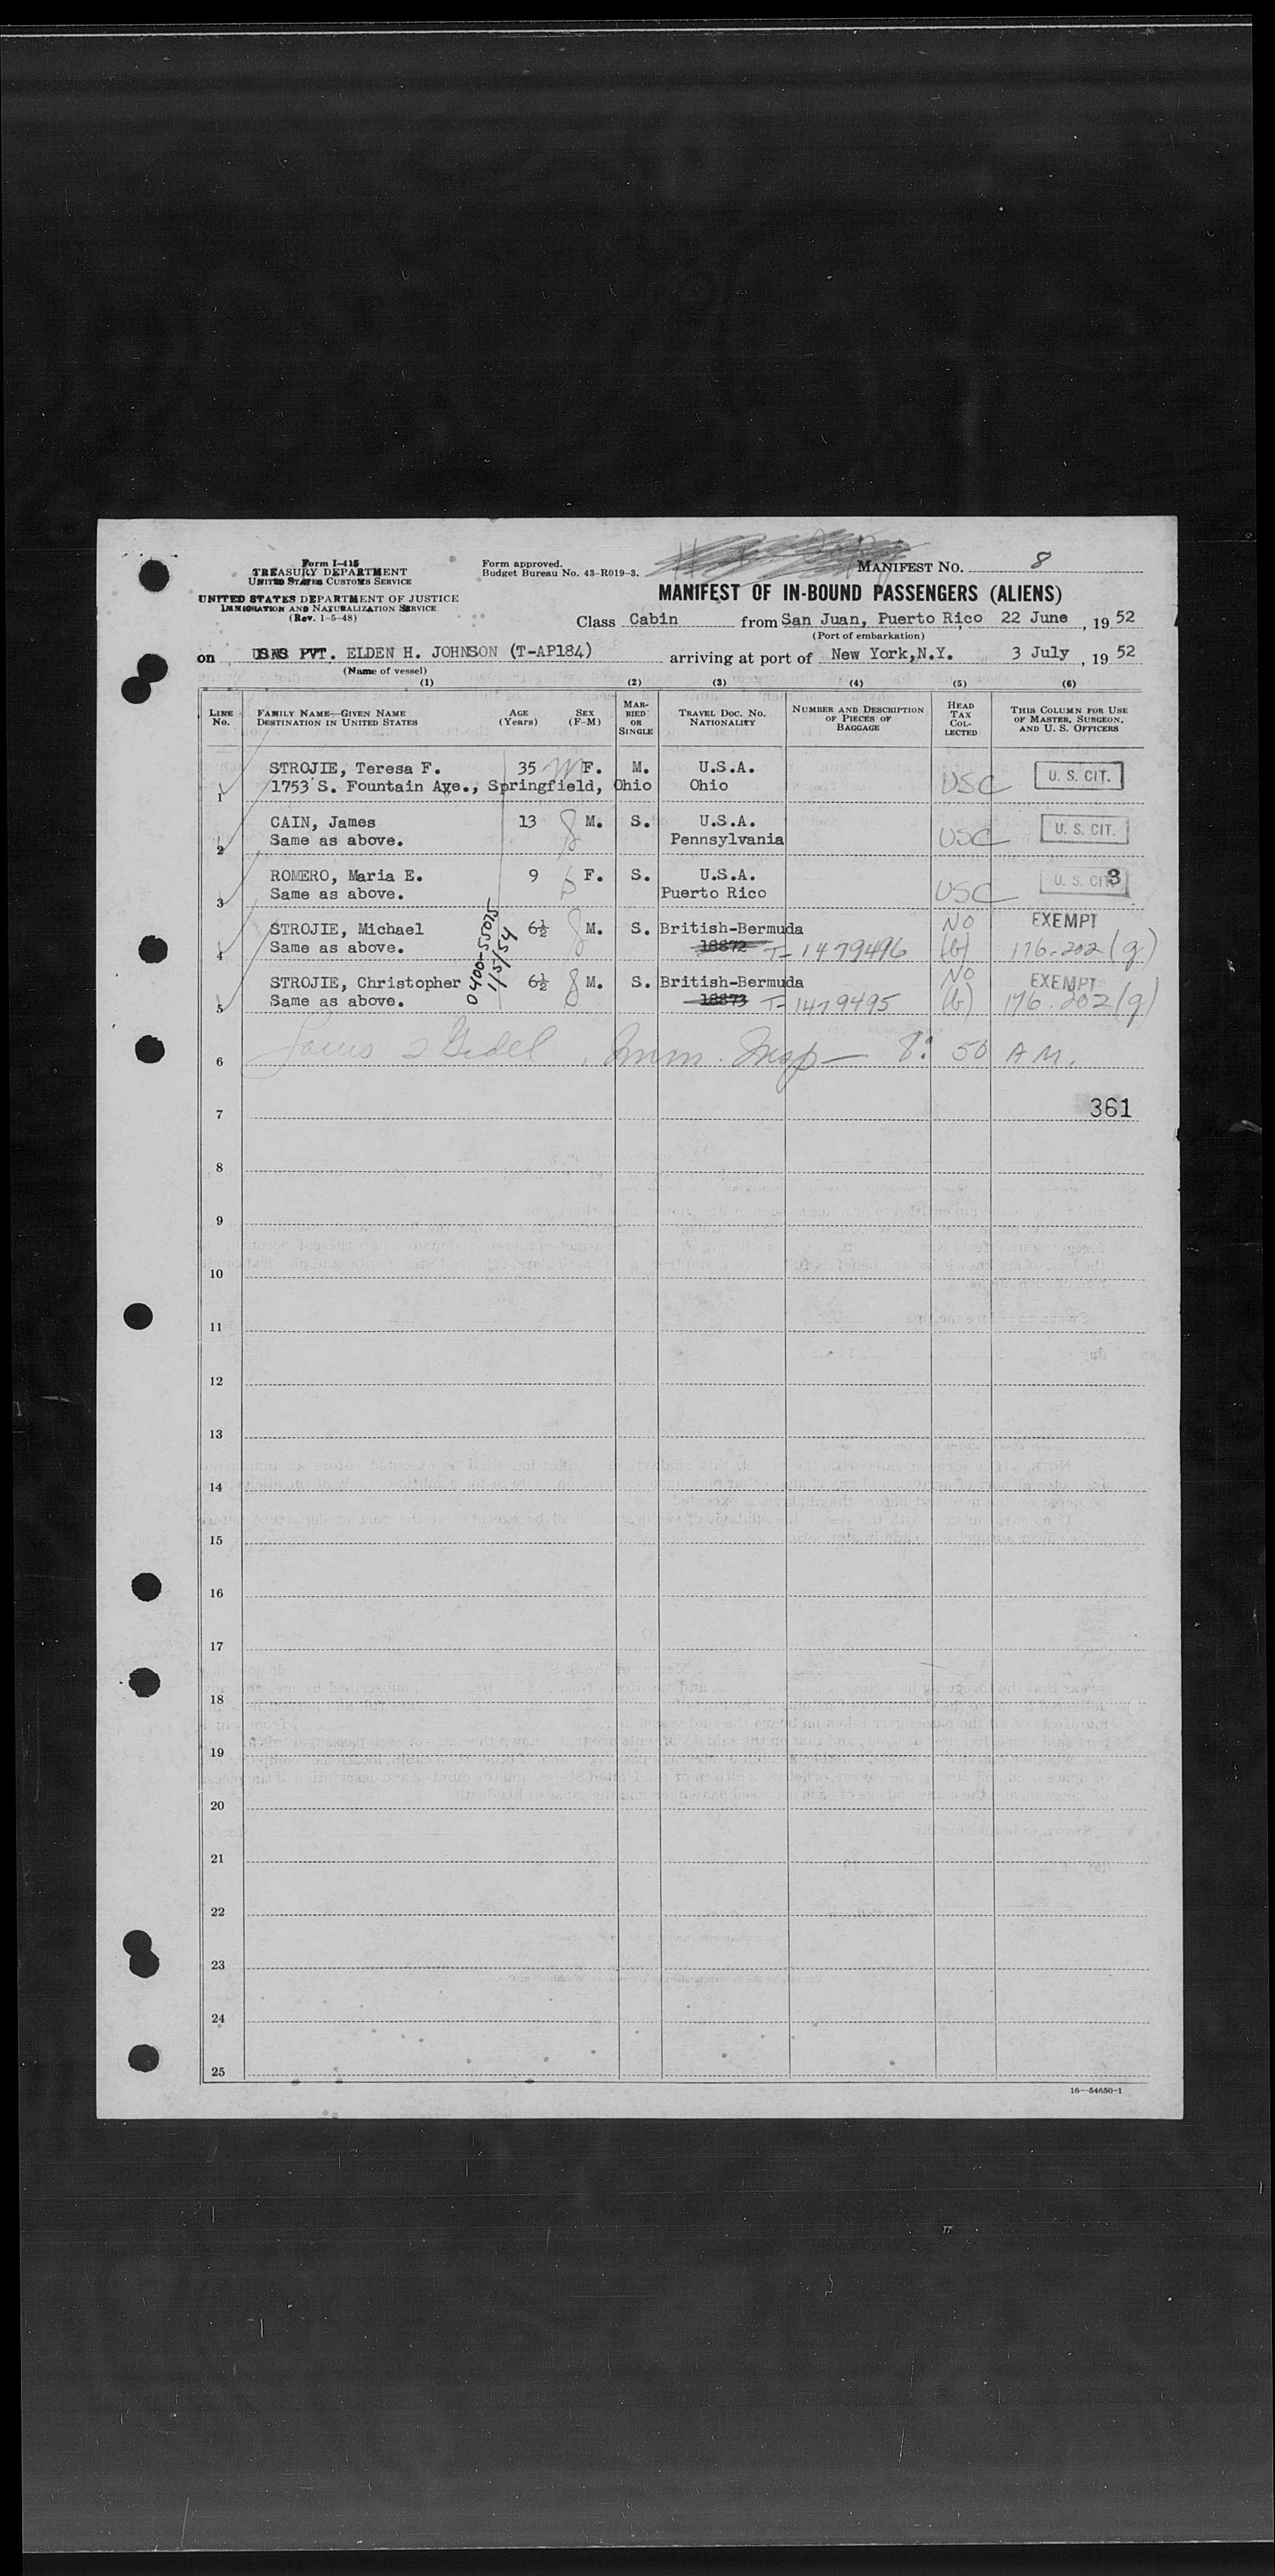 Form I-415
TREASURY DEPARTMENT
UNITED STATES CUSTOMS SERVICE
UNITED STATES DEPARTMENT OF JUSTICE
IMMIGRATION AND NATURALIZATION SERVICE
(Rev. 1-5-48)
Form approved.
Budget Bureau No. 43-R019-3.
MANIFEST NO. 8
MANIFEST OF IN-BOUND PASSENGERS (ALIENS)
Class Cabin from San Juan, Puerto Rico 22 June, 1952
(Port of embarkation)
on USNS PVT. ELDEN H. JOHNSON (T-AP184) arriving at port of New York,N.Y. 3 July, 1952
(Name of vessel)
(1) (2) (3) (4) (5) (6)
LINE No. FAMILY NAME—GIVEN NAME DESTINATION IN UNITED STATES AGE (Years) SEX (F-M) MARRIED OR SINGLE TRAVEL DOC. NO. NATIONALITY NUMBER AND DESCRIPTION OF PIECES OF BAGGAGE HEAD TAX COLLECTED THIS COLUMN FOR USE OF MASTER, SURGEON, AND U. S. OFFICERS
STROJIE, Teresa F. 35 F. M. U.S.A. USC U. S. CIT.
1 1753 S. Fountain Ave., Springfield, Ohio Ohio
CAIN, James 13 M. S. U.S.A. USC U. S. CIT.
2 Same as above. Pennsylvania
ROMERO, Maria E. 9 F. S. U.S.A. USC U. S. CIT. 3
3 Same as above. Puerto Rico
STROJIE, Michael 6½ M. S. British-Bermuda NO EXEMPT
4 Same as above. 18872 T-1479496 (b) 176.202(g)
0400-55075
1/5/54
STROJIE, Christopher 6½ M. S. British-Bermuda NO EXEMPT
5 Same as above. 18873 T-1479495 (b) 176.202(g)
6 Imm. Insp— 8:50 A M.
7 361
8
9
10
11
12
13
14
15
16
17
18
19
20
21
22
23
24
25
16—54650-1